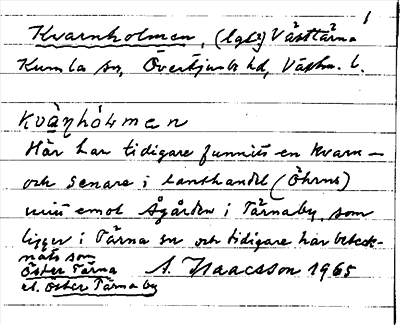 1
Kvarnholmen, (lgh) Västtärna
Kumla sn, Övertjurbo hd, Västm. l.
kvàn̥hòlmen
Här har tidigare funnits en kvarn
och senare i lanthandel (Öhrns)
mitt emot Ågården i Tärnaby, som
ligger i Tärna sn och tidigare har beteck-
nats som
Öster Tärna
el. Öster Tärnaby
A. Isaacsson 1965